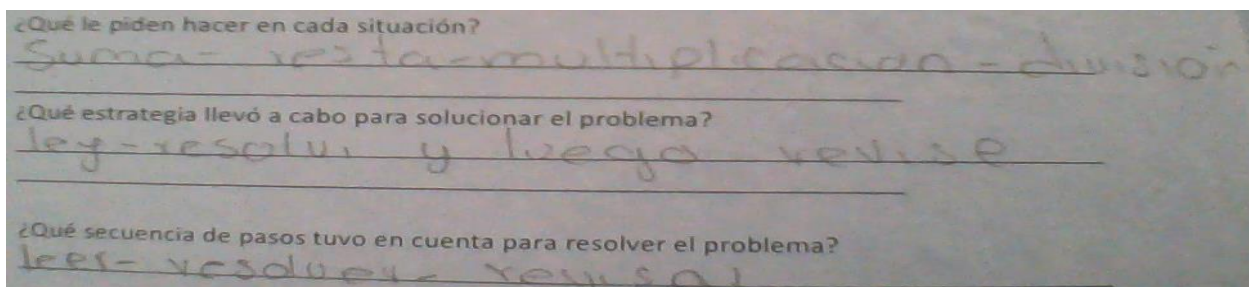 ¿Qué le piden hacer en cada situación?
Suma- resta-multiplicación - división
¿Qué estrategia llevó a cabo para solucionar el problema?
ley-resolvi y luego revise
¿Qué secuencia de pasos tuvo en cuenta para resolver el problema?
leer- resolver- revisar